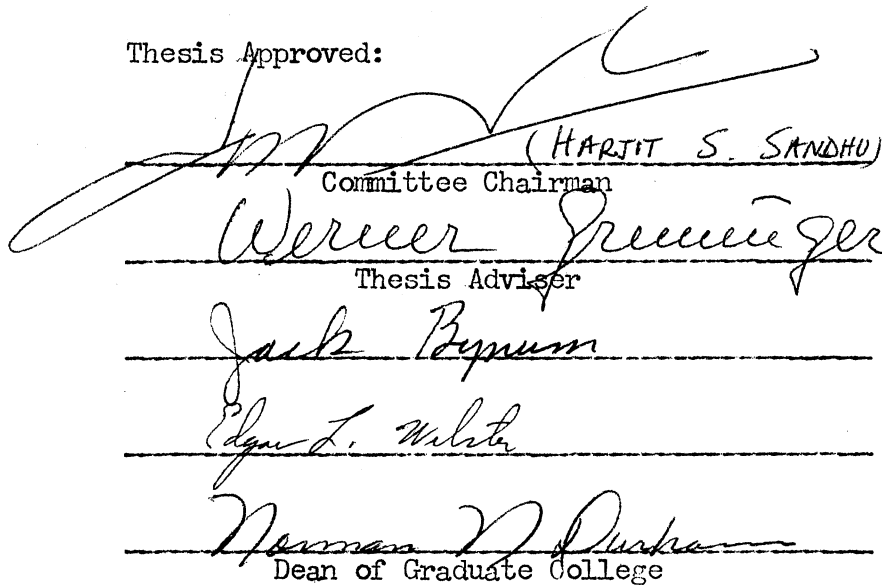 Thesis Approved:
(HARJIT S. SANDHU)
Committee Chairman
Werner Gruninger
Thesis Adviser
Jack Bynum
Edgar L. Webster
Norman N Durham
Dean of Graduate College